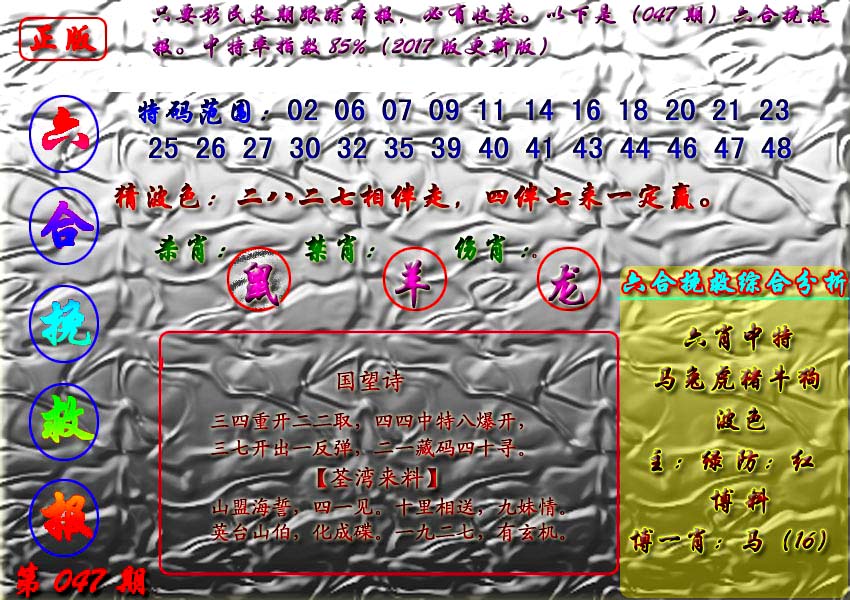 正版
只要彩民长期跟踪本报，必有收获。以下是（047期）六合挽救
报。中特率指数85%（2017版更新版）
六
合
挽
救
报
第 047 期
特码范围：02 06 07 09 11 14 16 18 20 21 23
25 26 27 30 32 35 39 40 41 43 44 46 47 48
猜波色：二八二七相伴走，四伴七来一定赢。
杀肖： 禁肖： 伤肖：。
鼠 羊 龙
国望诗
三四重开二二取，四四中特八爆开，
三七开出一反弹，二一藏码四十寻。
【荃湾来料】
山盟海誓，四一见。十里相送，九妹情。
英台山伯，化成碟。一九二七，有玄机。
六合挽救综合分析
六肖中特
马兔虎猪牛狗
波色
主：绿 防：红
博料
博一肖：马（16）